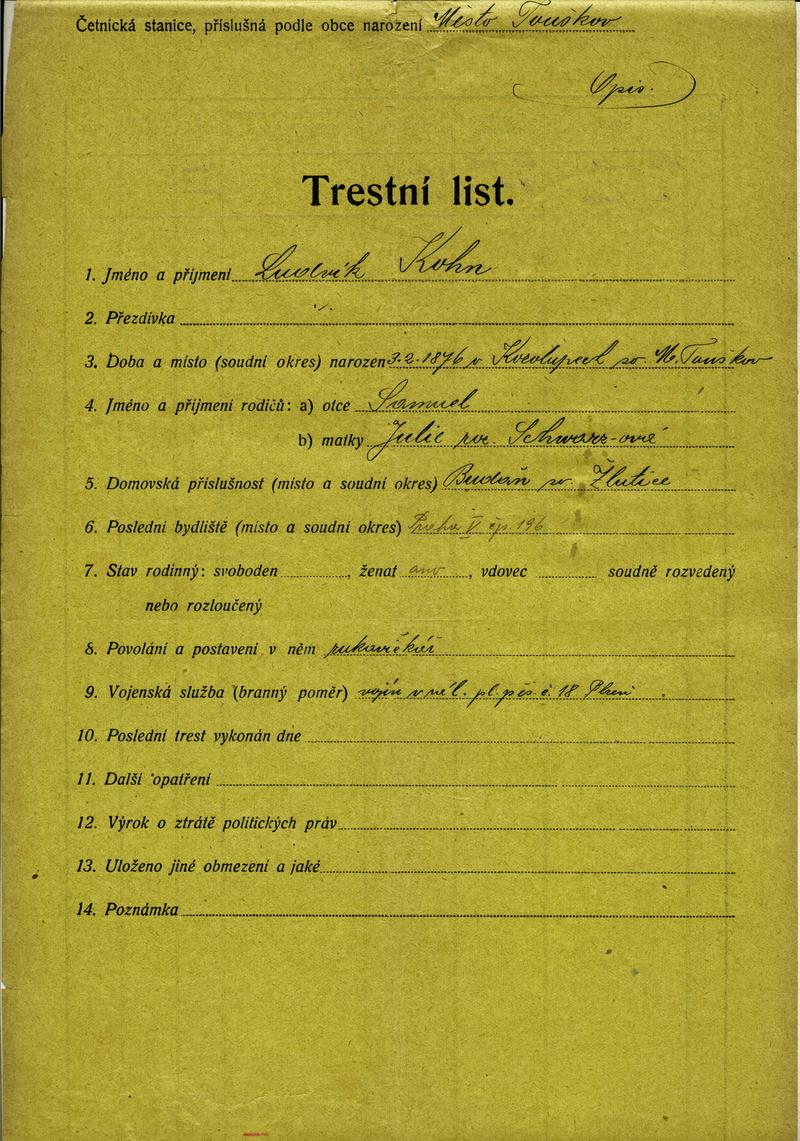 Četnická stanice, příslušná podle obce narození Město Touškov
Opis.
Trestní list.
1. Jméno a příjmení Ludvík Kohn
2. Přezdívka
3. Doba a místo (soudní okres) narozen 3.2.1876 v Kozolupech so. M. Touškov
4. Jméno a příjmení rodičů: a) otce Samuel
b) matky Julie roz. Schwarz-ové
5. Domovská příslušnost (místo a soudní okres) Budaň so. Žlutice
6. Poslední bydliště (místo a soudní okres) Praha V čp. 196
7. Stav rodinný: svoboden, ženat ano, vdovec soudně rozvedený
nebo rozloučený
8. Povolání a postavení v něm rukavičkář
9. Vojenská služba (branný poměr) vojín v pl. pěš. č. 18 Plzeň
10. Poslední trest vykonán dne
11. Další opatření
12. Výrok o ztrátě politických práv
13. Uloženo jiné obmezení a jaké
14. Poznámka